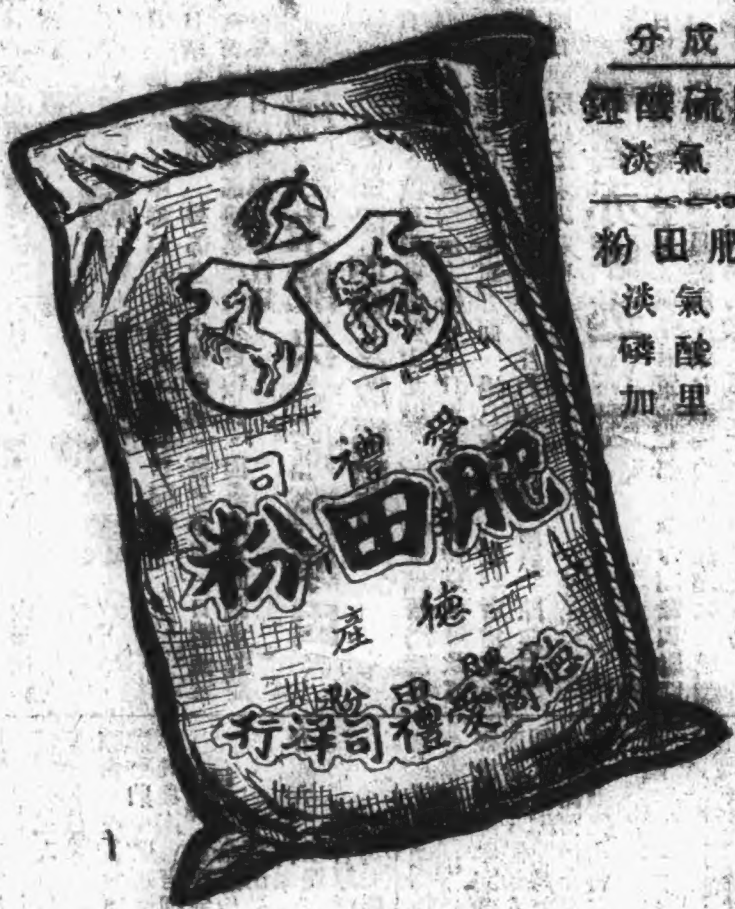 成分
硫酸錏
淡氣
肥田粉
淡氣
磷酸
加里
愛禮司
肥田粉
德產
德商愛禮司洋行